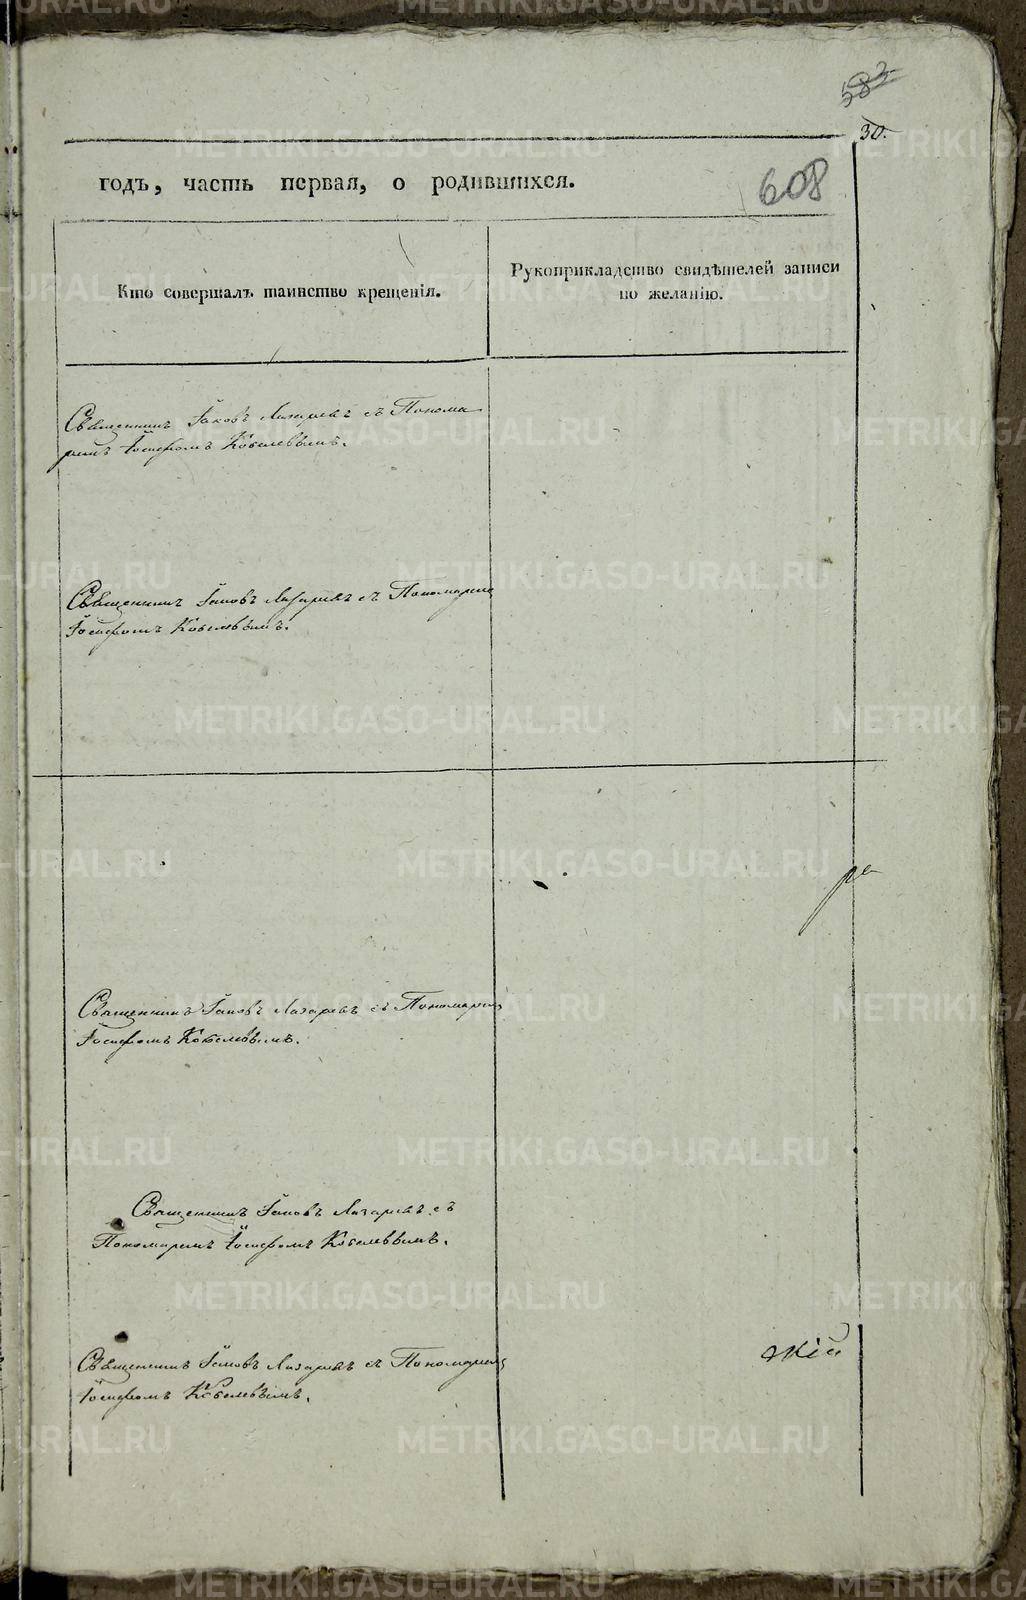 582
30.
годъ, часть первая, о родившихся.
608
Кто совершалъ таинство крещенія.
Рукоприкладство свидѣтелей записи
по желанію.
Священникъ Іаковъ Лазаревъ съ Понома
ремъ Іосифомъ Кобелевымъ.
Священникъ Іаковъ Лазаревъ съ Пономаремъ
Іосифомъ Кобелевымъ.
ра
Священникъ Іаковъ Лазаревъ съ Пономаремъ
Іосифомъ Кобелевымъ.
Священникъ Іаковъ Лазаревъ съ
Пономаремъ Іосифомъ Кобелевымъ.
Священникъ Іаковъ Лазаревъ съ Пономаремъ
Іосифомъ Кобелевымъ.
METRIKI.GASO-URAL.RU